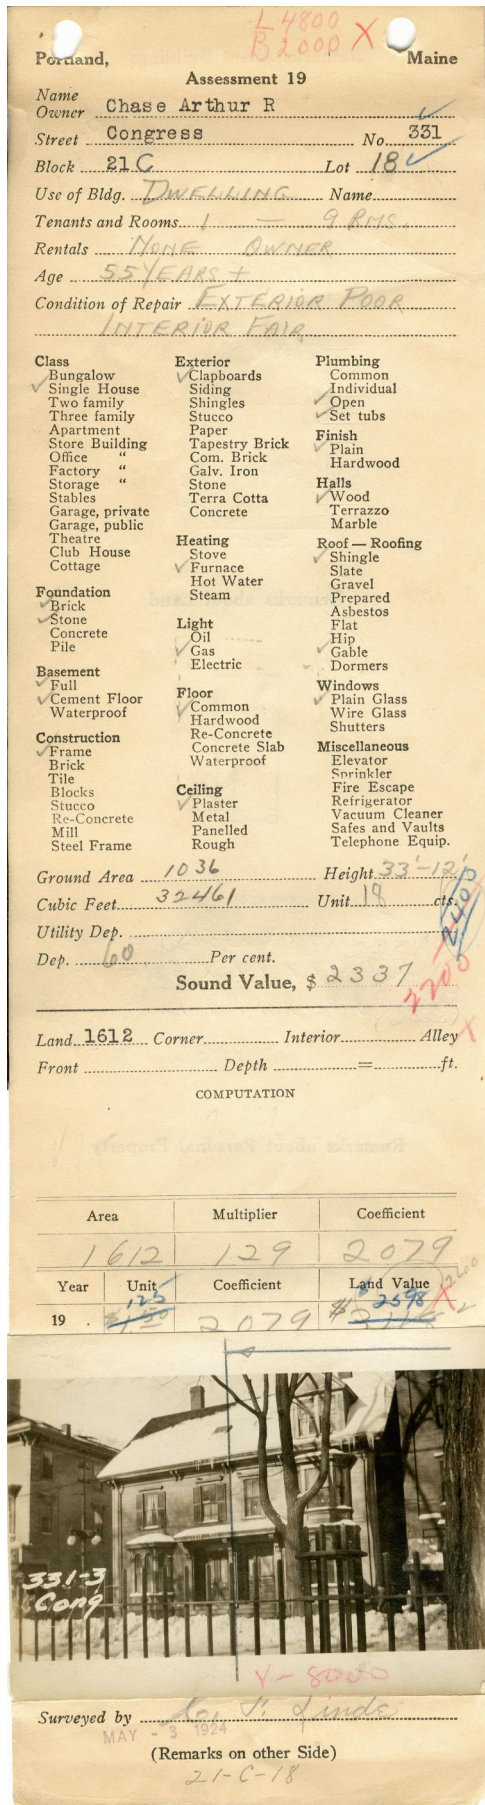 L 4800
B 2000 X
Portland, Maine
Assessment 19
Name
Owner Chase Arthur R
Street Congress No. 331
Block 21 C Lot 18
Use of Bldg. DWELLING Name
Tenants and Rooms 1 — 9 RMS.
Rentals NONE OWNER
Age 55 YEARS +
Condition of Repair EXTERIOR POOR
INTERIOR FAIR
Class
Bungalow
Single House
Two family
Three family
Apartment
Store Building
Office "
Factory "
Storage "
Stables
Garage, private
Garage, public
Theatre
Club House
Cottage
Foundation
Brick
Stone
Concrete
Pile
Basement
Full
Cement Floor
Waterproof
Construction
Frame
Brick
Tile
Blocks
Stucco
Re-Concrete
Mill
Steel Frame
Exterior
Clapboards
Siding
Shingles
Stucco
Paper
Tapestry Brick
Com. Brick
Galv. Iron
Stone
Terra Cotta
Concrete
Heating
Stove
Furnace
Hot Water
Steam
Light
Oil
Gas
Electric
Floor
Common
Hardwood
Re-Concrete
Concrete Slab
Waterproof
Ceiling
Plaster
Metal
Panelled
Rough
Plumbing
Common
Individual
Open
Set tubs
Finish
Plain
Hardwood
Halls
Wood
Terrazzo
Marble
Roof — Roofing
Shingle
Slate
Gravel
Prepared
Asbestos
Flat
Hip
Gable
Dormers
Windows
Plain Glass
Wire Glass
Shutters
Miscellaneous
Elevator
Sprinkler
Fire Escape
Refrigerator
Vacuum Cleaner
Safes and Vaults
Telephone Equip.
Ground Area 1036 Height 33'-12'
Cubic Feet 32461 Unit 18 cts.
2400
Utility Dep.
Dep. 60 Per cent.
Sound Value, $ 2337
2200
Land 1612 Corner Interior Alley X
Front Depth = ft.
COMPUTATION
Area Multiplier Coefficient
1612 129 2079
Year Unit Coefficient Land Value 2600
1.25 $ 2598 X
19 . 2079
331-3
Cong
V - 8000
Surveyed by
MAY - 3 1924
(Remarks on other Side)
21-C-18